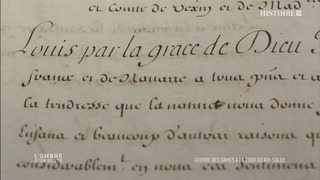 HISTOIRE
et Comte de Vexin et de Mad
Louis par la grace de Dieu
france et de Navarre a tous p͠ns et a
la tendresse que la nature nous donne
Enfans et beaucoup d'autres raisons q
considerablem.t en nous ces sentimens
L'OMBRE
D'UN DOUTE
GUERRE DES DAMES À LA COUR DU ROI-SOLEIL